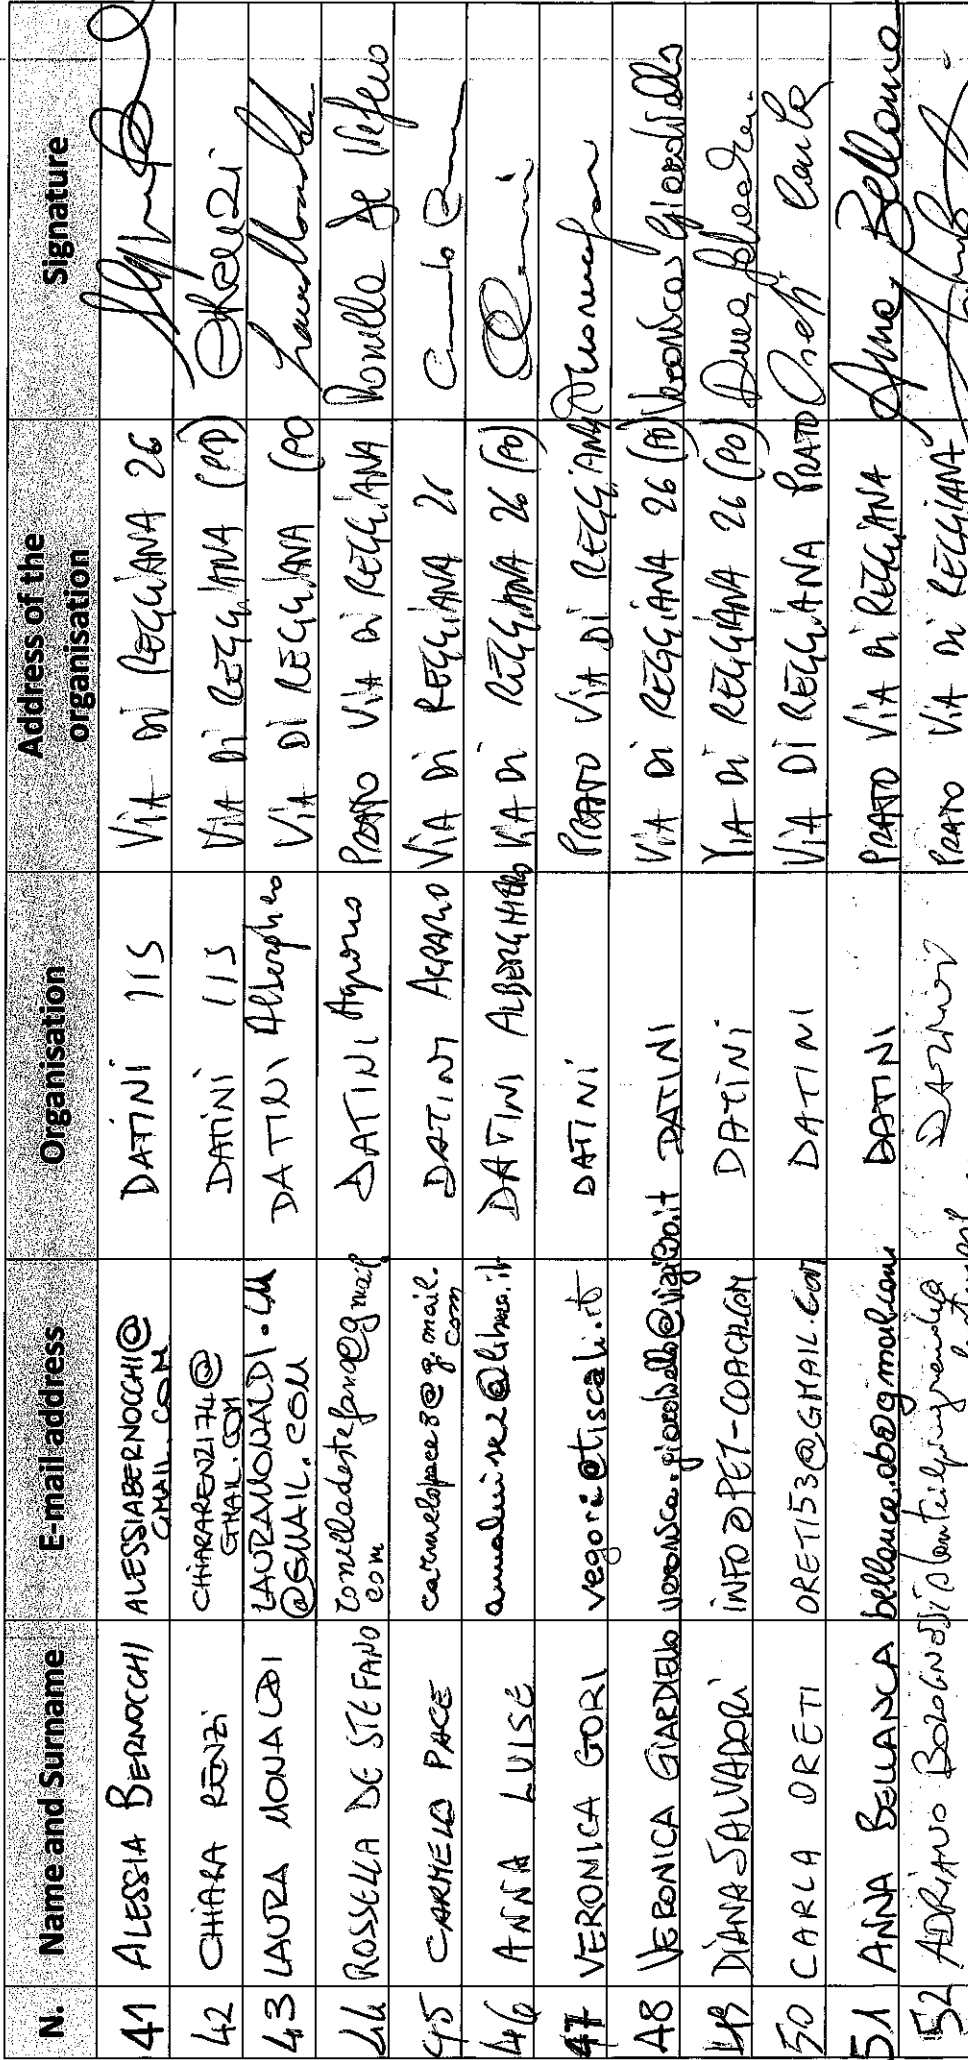 N. Name and Surname E-mail address Organisation Address of the organisation Signature
41 ALESSIA BERNOCCHI ALESSIABERNOCCHI@ GMAIL.COM DATINI IIS VIA DI REGGIANA 26
42 CHIARA RENZI CHIARARENZI74@ GMAIL.COM DATINI IIS VIA DI REGGIANA (PO) CHRenzi
43 LAURA MONALDI LAURAMONALDI.LM @GMAIL.COM DATINI Alberghiero VIA DI REGGIANA (PO
44 ROSSELLA DE STEFANO DATINI Agrario PRATO VIA DI REGGIANA
45 CARMELO PACE carmelopace3@g.mail. com DATINI AGRARIO VIA DI REGGIANA 26
46 ANNA LUISE annaluise2@libero.it DATINI ALBERGHIERO VIA DI REGGIANA 26 (PO)
47 VERONICA GORI vegori@tiscali.it DATINI PRATO VIA DI REGGIANA
48 VERONICA GIARDIELLO DATINI VIA DI REGGIANA 26 (PO) Veronica Giardiello
49 DIANA SALVADORI INFO@PET-COACH.COM DATINI VIA DI REGGIANA 26 (PO)
50 CARLA ORETI ORETI53@GMAIL.COM DATINI VIA DI REGGIANA PRATO Oreti Carla
51 ANNA BELLANCA DATINI PRATO VIA DI REGGIANA Anna Bellanca
52 ADRIANO PRATO VIA DI REGGIANA